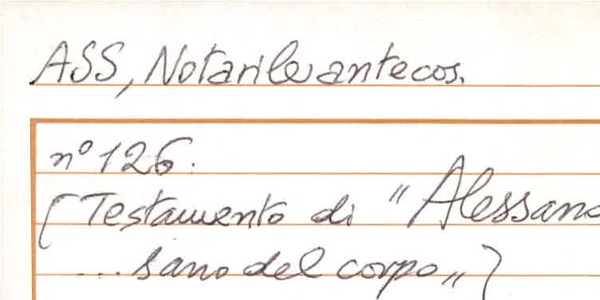 ASS, Notarile antecos.
n° 126.
[Testamento di "Alessand
... sano del corpo"]